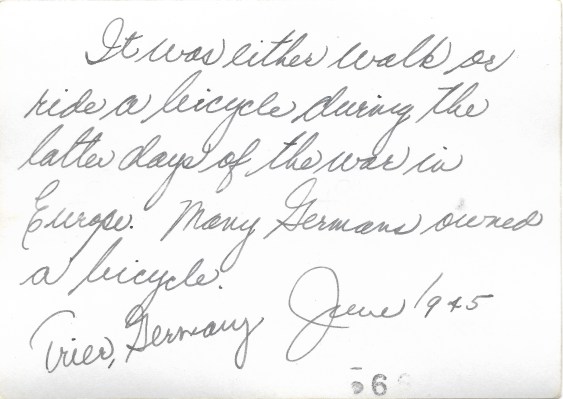 It was either walk or
ride a bicycle during the
latter days of the war in
Europe. Many Germans owned
a bicycle.
Trier, Germany June 1945
56